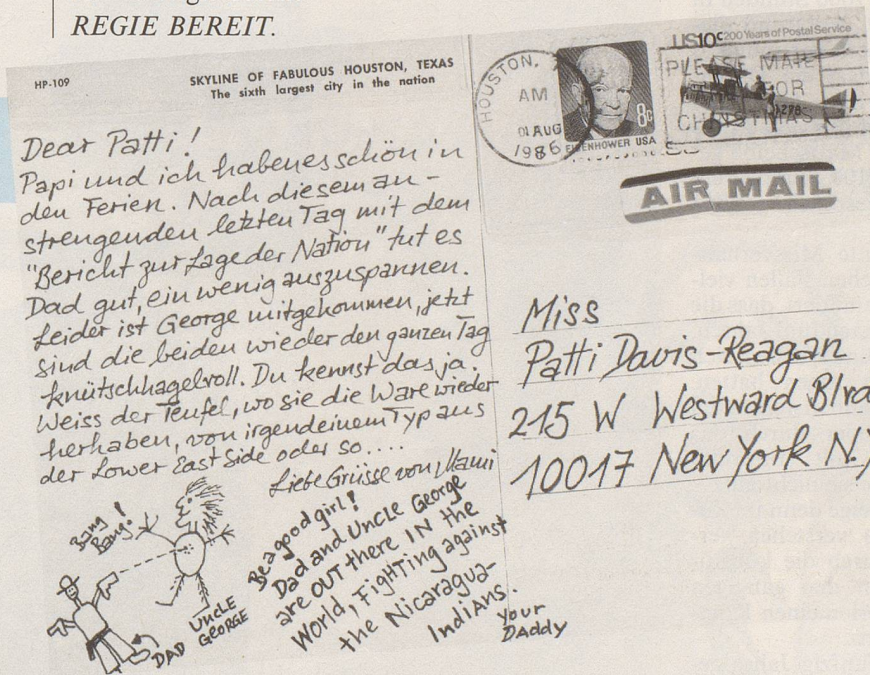 REGIE BEREIT.
HP-109
SKYLINE OF FABULOUS HOUSTON, TEXAS
The sixth largest city in the nation
Dear Patti!
Papi und ich haben es schön in
den Ferien. Nach diesem an-
strengenden letzten Tag mit dem
"Bericht zur Lage der Nation" tut es
Dad gut, ein wenig auszuspannen.
Leider ist George mitgekommen, jetzt
sind die beiden wieder den ganzen Tag
knütschhagelvoll. Du kennst das ja.
Weiss der Teufel, wo sie die Ware wieder
herhaben, von irgendeinem Typ aus
der Lower East Side oder so....
Liebe Grüsse von Mami
Be a good girl!
Dad and Uncle George
are OUT there IN the
World, Fighting against
the Nicaragua-
Indians.
your
DADDY
Bang
Bang!
DAD
UNCLE
GEORGE
HOUSTON,
AM
01 AUG
1986
EISENHOWER USA
8c
US10c 200 Years of Postal Service
PLEASE MAIL
FOR
CHRISTMAS
AIR MAIL
Miss
Patti Davis-Reagan
215 W Westward Blvd
10017 New York N.Y